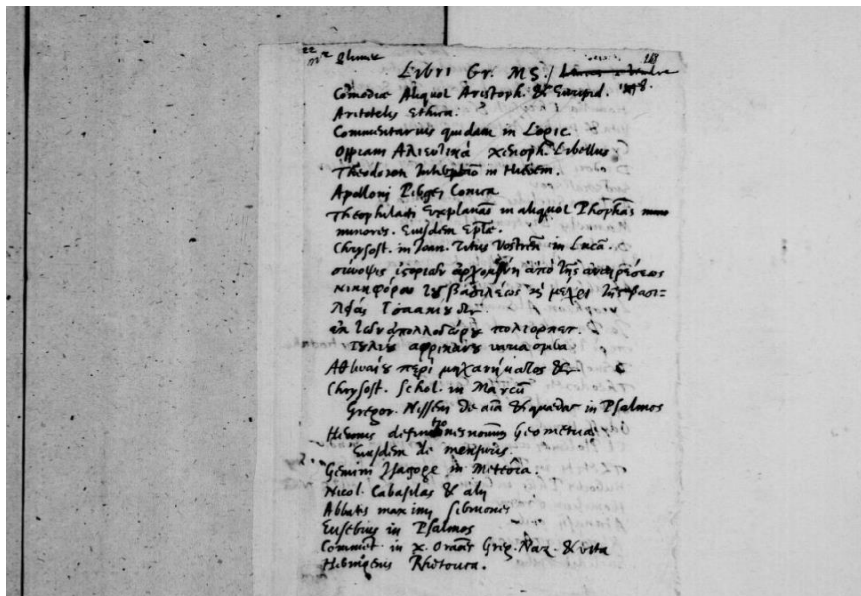 Libri Gr. MS.
Comediæ Aliquot Aristoph. & Euripid.
Aristotelis Ethica.
Commentarius quidam in Logic.
Oppiani Αλιευτικά xenoph. Libellus
Theodoret in
Apollonij Pergei Conica
Theophilacti Explanaō in aliquot Prophās
minores. Eiusdem Eptē.
Chrysost. in Ioan. Titus Vostren̄ in Lucā.
σύνοψις ἱςοριῶν ἀρχομένη ἀπό τῆς ἀναιρέσεως
νικηφόρου τȣ βασιλέως κỳ μέχρι τῆς βασι=
λείας Ισαακίου
ἐκ τῶν ἀπολλοδώρȣ πολιορκητ.
Ιουλίȣ αφρικάνȣ
Αθηναίȣ περί μηχανήματος &c.
Chrysost. Schol. in Marcū
Gregor. Nissen de aīa & in Psalmos
Heronis Geometrica
Eiusdem de mensuris.
Gemini Isagoge in Meteōra.
Nicol. Cabasilas & alij
Abbatis maximi sermones
Eusebius in Psalmos
Comment. in x. Oraōes Greg. Naz. & vita
Hermogenis Rhetorica.